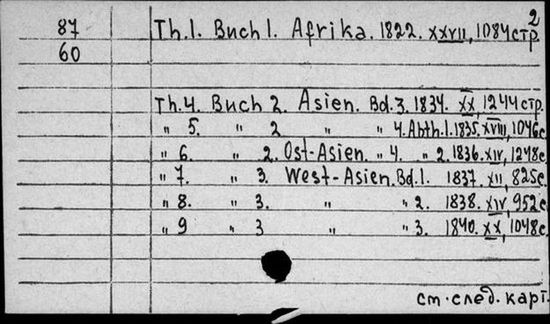 2
87 Th.1. Buch 1. Afrika. 1822. XXVII, 1084 стр.
60
Th.4. Buch 2. Asien. Bd.3. 1834. XX, 1244 стр.
" 5. " 2 " " 4. Abth.1. 1835. XVIII, 1046 с.
" 6. " 2. Ost-Asien. " 4. " 2. 1836. XIV, 1248 с.
" 7. " 3. West-Asien. Bd.1. 1837. XII, 825 с.
" 8. " 3. " " 2. 1838. XIV, 952 с.
" 9 " 3 " " 3. 1840. XX, 1048 с.
см. след. карт.